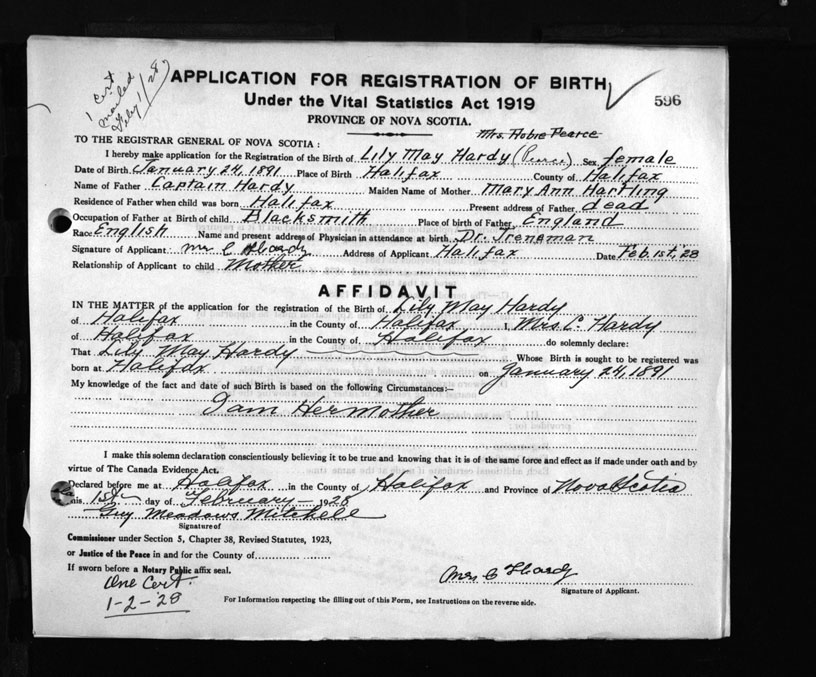 1 Cert
mailed
Feby 1/28
APPLICATION FOR REGISTRATION OF BIRTH
596
Under the Vital Statistics Act 1919
PROVINCE OF NOVA SCOTIA.
Mrs. Hobie Pearce
TO THE REGISTRAR GENERAL OF NOVA SCOTIA :
I hereby make application for the Registration of the Birth of Lily May Hardy (Pearce) Sex female
Date of Birth January 24, 1891 Place of Birth Halifax County of Halifax
Name of Father Captain Hardy Maiden Name of Mother Mary Ann Hartling
Residence of Father when child was born Halifax Present address of Father dead
Occupation of Father at Birth of child Blacksmith Place of birth of Father England
Race English Name and present address of Physician in attendance at birth Dr. Treneman
Signature of Applicant Mrs C Hardy Address of Applicant Halifax Date Feb. 1st, 28
Relationship of Applicant to child Mother
AFFIDAVIT
IN THE MATTER of the application for the registration of the Birth of Lily May Hardy
of Halifax in the County of Halifax I, Mrs C. Hardy
of Halifax in the County of Halifax do solemnly declare:
That Lily May Hardy Whose Birth is sought to be registered was
born at Halifax on January 24, 1891
My knowledge of the fact and date of such Birth is based on the following Circumstances:—
I am Her Mother
I make this solemn declaration conscientiously believing it to be true and knowing that it is of the same force and effect as if made under oath and by
virtue of The Canada Evidence Act.
Declared before me at Halifax in the County of Halifax and Province of Nova Scotia
this 1st day of February 1928
Guy Meadows Mitchell
Signature of
Commissioner under Section 5, Chapter 38, Revised Statutes, 1923,
or Justice of the Peace in and for the County of
If sworn before a Notary Public affix seal.
Mrs C Hardy
Signature of Applicant.
One Cert.
1-2-28
For Information respecting the filling out of this Form, see Instructions on the reverse side.